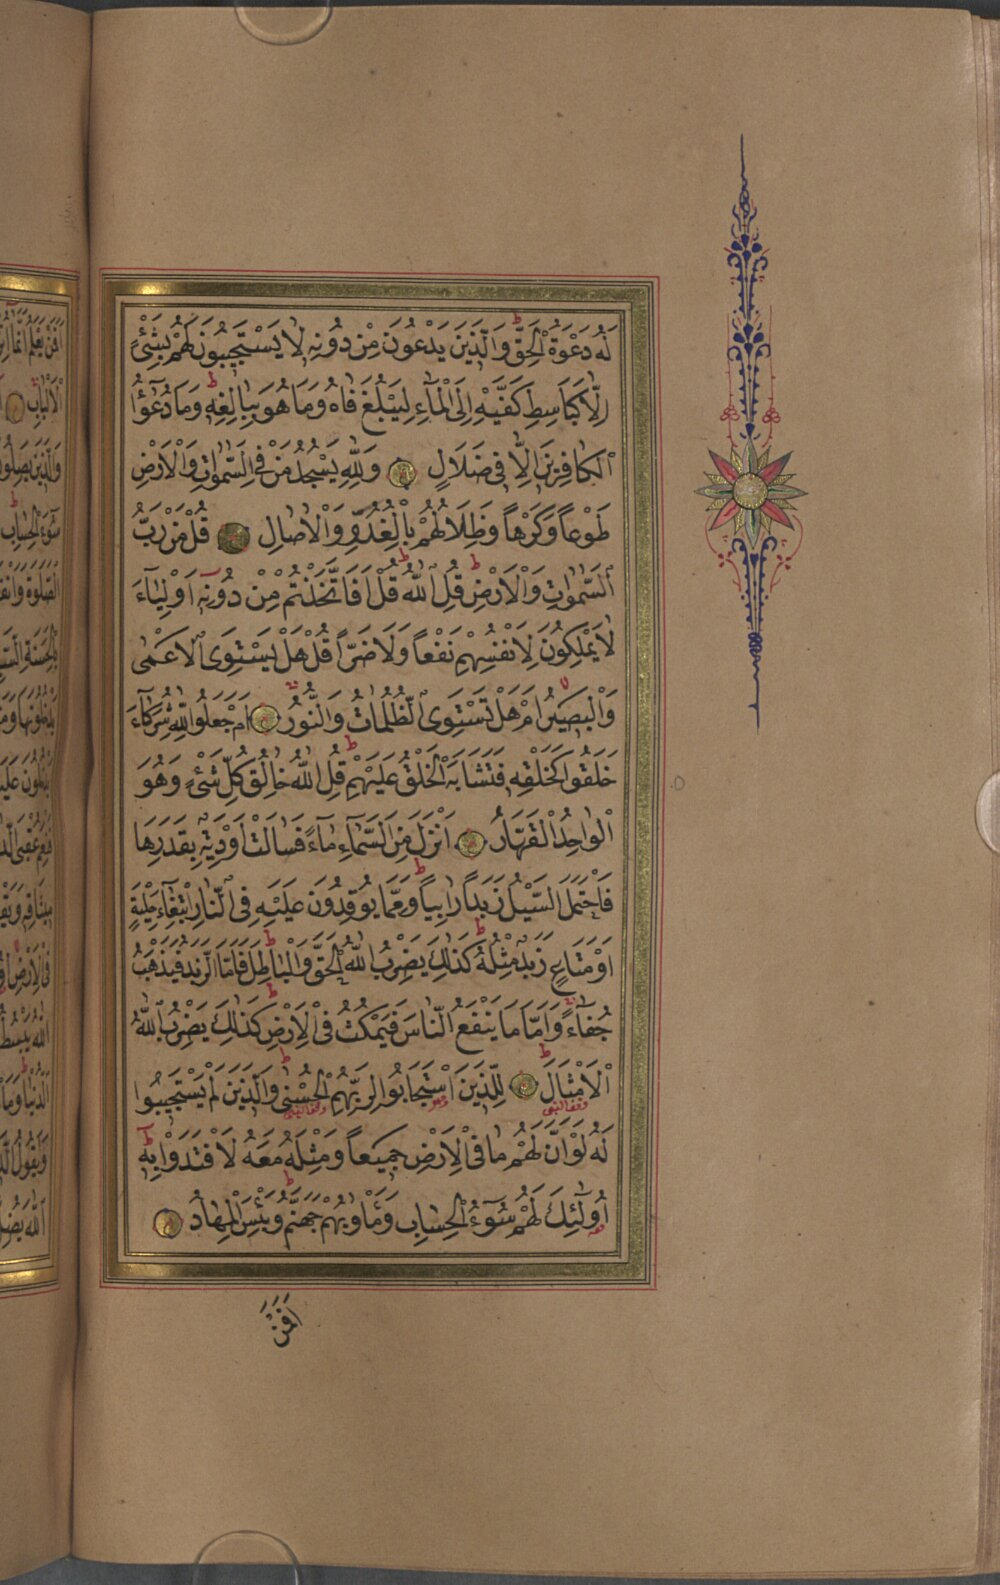 لَهُ دَعْوَةُ الْحَقِّ وَالَّذِينَ يَدْعُونَ مِنْ دُونِهِ لَا يَسْتَجِيبُونَ لَهُمْ بِشَيْءٍ
اِلَّا كَبَاسِطِ كَفَّيْهِ اِلَى الْمَآءِ لِيَبْلُغَ فَاهُ وَمَا هُوَ بِبَالِغِهِ وَمَا دُعَٓؤُا
الْكَافِرِينَ اِلَّا فِى ضَلَالٍ وَلِلّٰهِ يَسْجُدُ مَنْ فِى السَّمٰوَاتِ وَالْاَرْضِ
طَوْعاً وَكَرْهاً وَظِلَالُهُمْ بِالْغُدُوِّ وَالْاٰصَالِ قُلْ مَنْ رَبُّ
السَّمٰوَاتِ وَالْاَرْضِ قُلِ اللّٰهُ قُلْ اَفَاتَّخَذْتُمْ مِنْ دُونِهِ اَوْلِيَآءَ
لَا يَمْلِكُونَ لِاَنْفُسِهِمْ نَفْعاً وَلَا ضَرّاً قُلْ هَلْ يَسْتَوِى الْاَعْمٰى
وَالْبَصِيرُ اَمْ هَلْ تَسْتَوِى الظُّلُمَاتُ وَالنُّورُ اَمْ جَعَلُوا لِلّٰهِ شُرَكَآءَ
خَلَقُوا كَخَلْقِهِ فَتَشَابَهَ الْخَلْقُ عَلَيْهِمْ قُلِ اللّٰهُ خَالِقُ كُلِّ شَيْءٍ وَهُوَ
الْوَاحِدُ الْقَهَّارُ اَنْزَلَ مِنَ السَّمَآءِ مَآءً فَسَالَتْ اَوْدِيَةٌ بِقَدَرِهَا
فَاحْتَمَلَ السَّيْلُ زَبَداً رَابِياً وَمِمَّا يُوقِدُونَ عَلَيْهِ فِى النَّارِ ابْتِغَآءَ حِلْيَةٍ
اَوْ مَتَاعٍ زَبَدٌ مِثْلُهُ كَذٰلِكَ يَضْرِبُ اللّٰهُ الْحَقَّ وَالْبَاطِلَ فَاَمَّا الزَّبَدُ فَيَذْهَبُ
جُفَآءً وَاَمَّا مَا يَنْفَعُ النَّاسَ فَيَمْكُثُ فِى الْاَرْضِ كَذٰلِكَ يَضْرِبُ اللّٰهُ
الْاَمْثَالَ لِلَّذِينَ اسْتَجَابُوا لِرَبِّهِمُ الْحُسْنٰى وَالَّذِينَ لَمْ يَسْتَجِيبُوا
لَهُ لَوْ اَنَّ لَهُمْ مَا فِى الْاَرْضِ جَمِيعاً وَمِثْلَهُ مَعَهُ لَافْتَدَوْا بِهِ
اُولٰٓئِكَ لَهُمْ سُوٓءُ الْحِسَابِ وَمَاْوٰيهُمْ جَهَنَّمُ وَبِئْسَ الْمِهَادُ
اَفَمَنْ